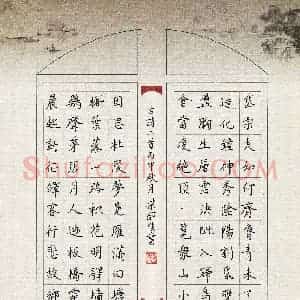 岱宗夫如何齊魯青未了
造化鍾神秀陰陽割昏曉
蕩胸生層雲決眥入歸鳥
會當凌絕頂一覽衆山小
古詩二首丙申秋月
晨起動征鐸客行悲故鄉
雞聲茅店月人跡板橋霜
槲葉落山路枳花明驛牆
因思杜陵夢鳧雁滿回塘